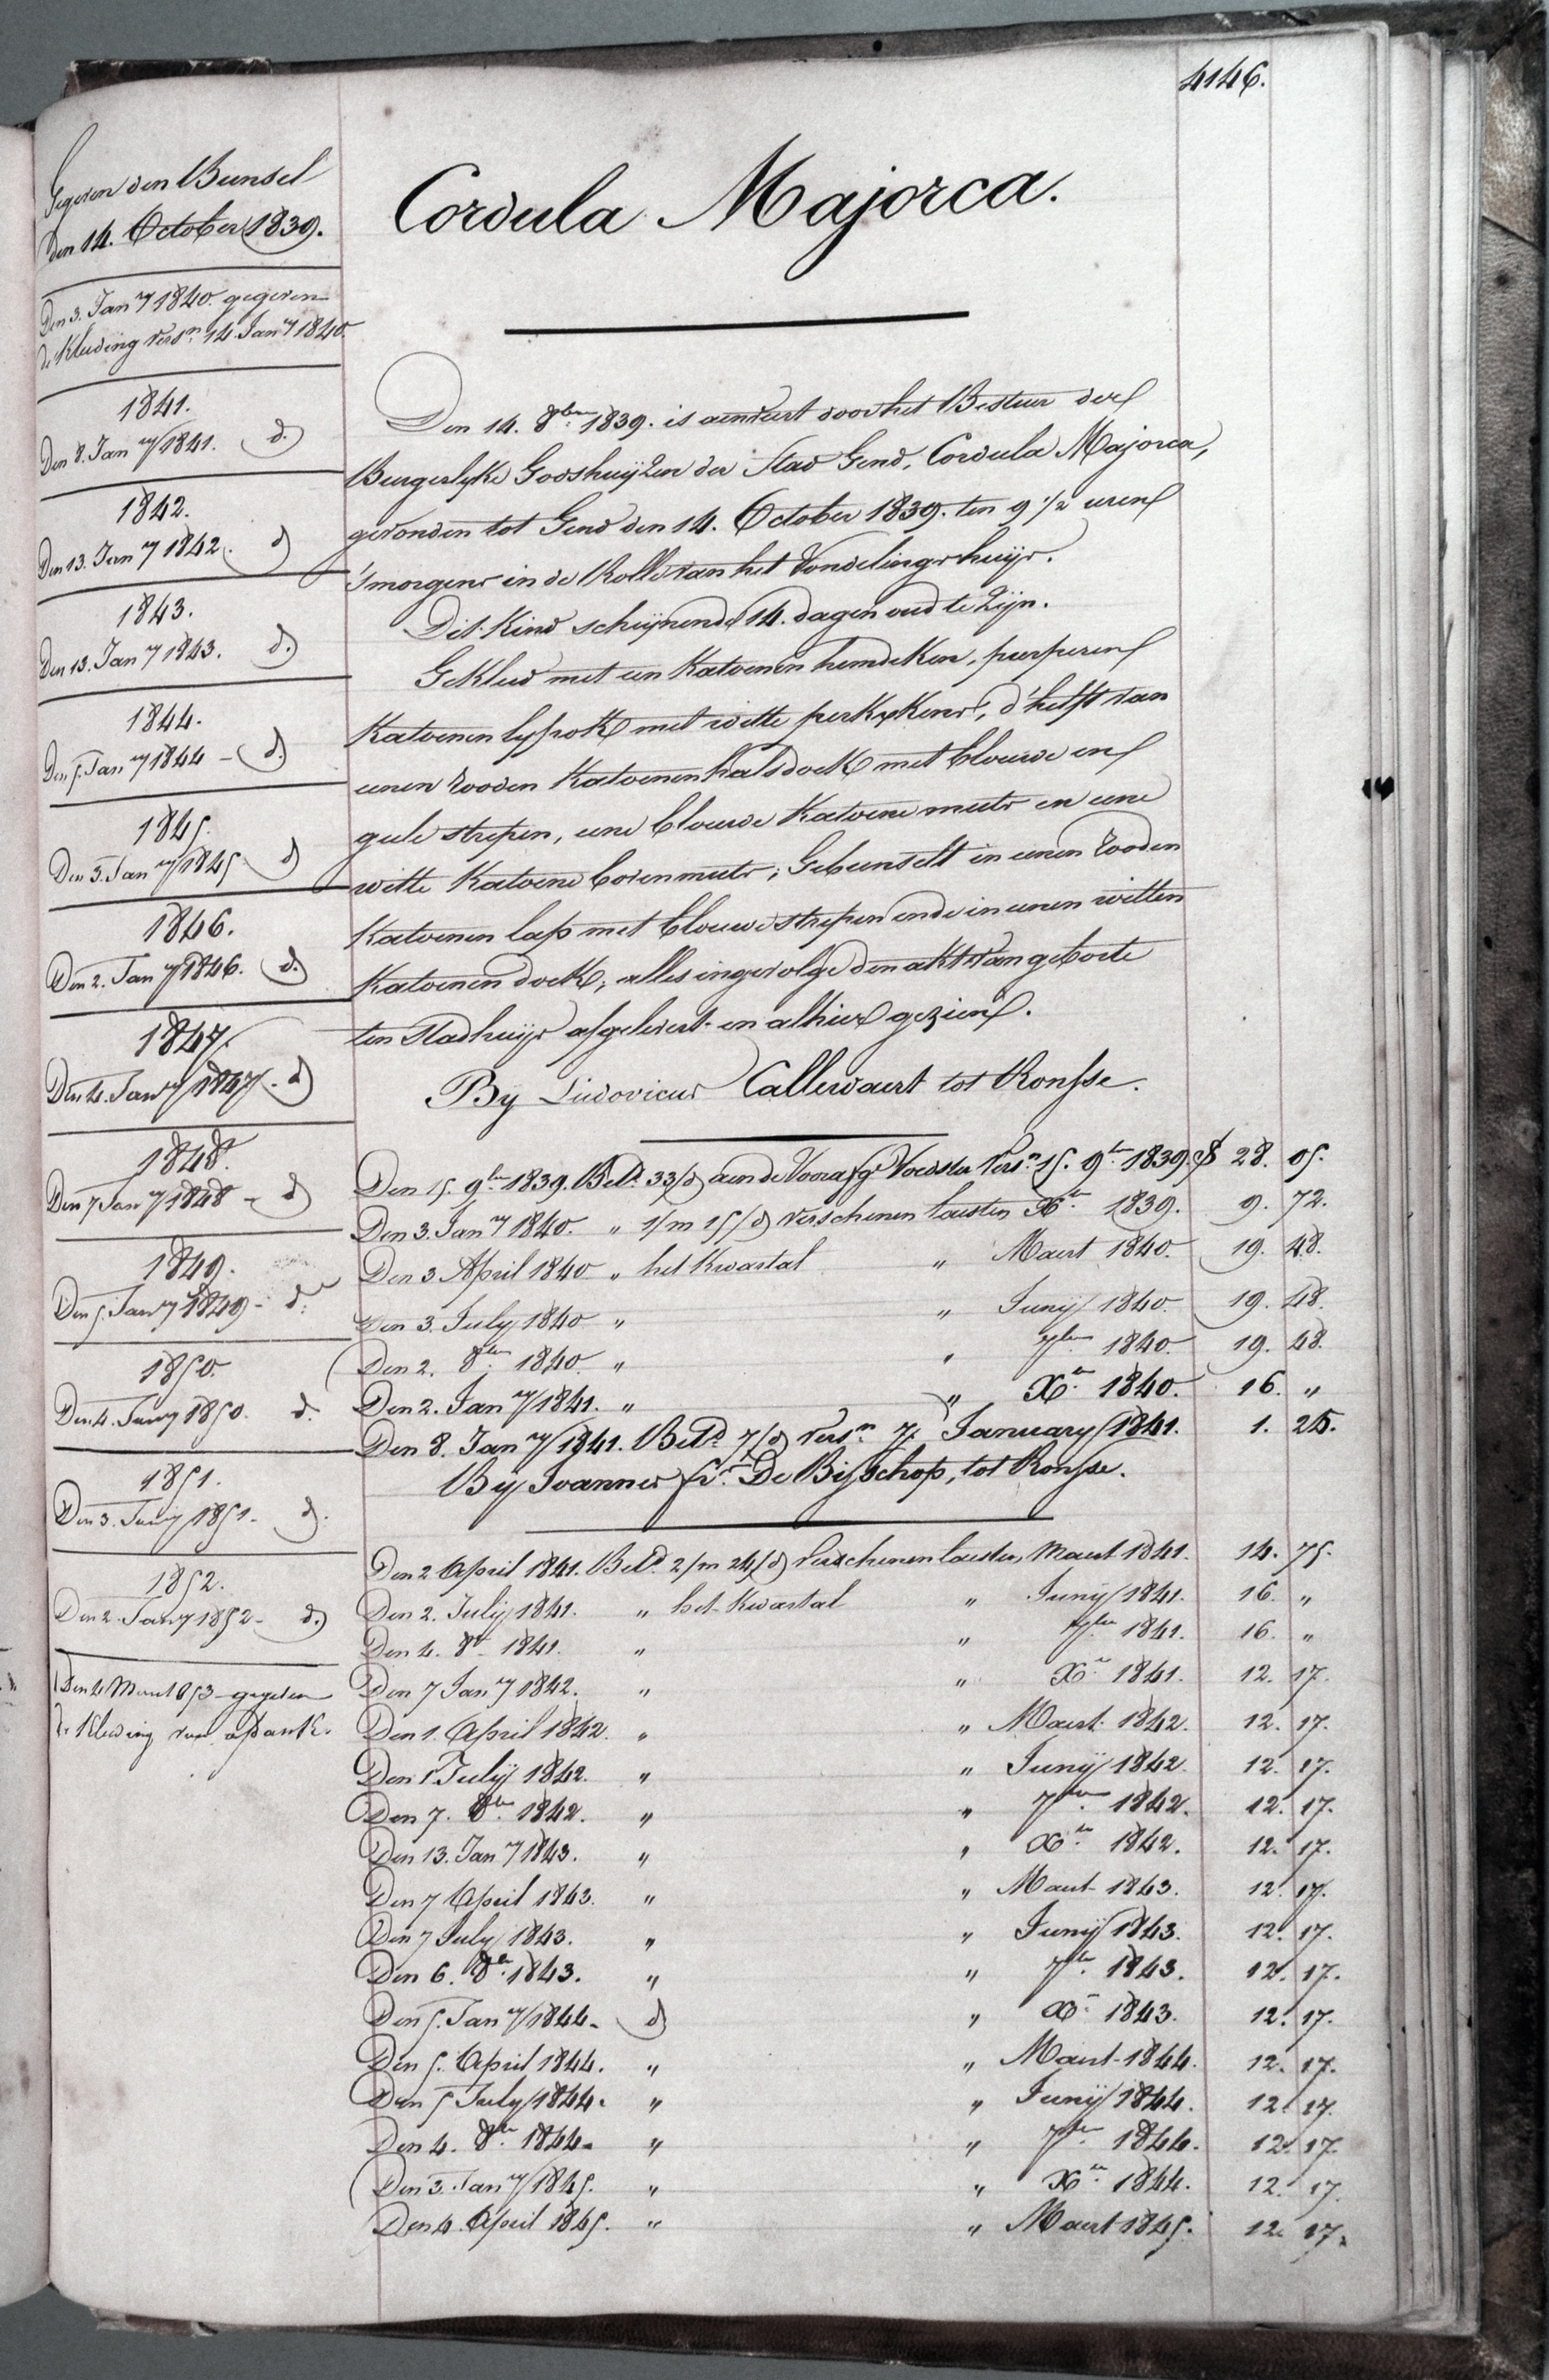 4146.
Gegeven den Bunsel
den 14. October 1839.
Den 3. Jan.ry 1840. gegeven
de Kleeding vers.n 14 Jan.ry 1840.
1841.
Den 8. Jan.ry 1841. d.)
1842.
Den 13. Jan.ry 1842. d)
1843.
Den 13. Jan.ry 1843. d.)
1844.
Den 5. Jan.ry 1844 - d.)
1845.
Den 3. Jan.ry 1845 d)
1846.
Den 2. Jan.ry 1846. d.)
1847.
Den 4. Jan.ry 1847. d)
1848.
Den 7 Jan.ry 1848 - d)
1849.
Den 5. Jan.ry 1849 - d.
1850.
Den 4. Jan.ry 1850. d.
1851.
Den 3. Jan.ry 1851. d.
1852.
Den 2. Jan.ry 1852 - d.)
Den 4 Maert 1853 gegeven
de Kleeding van afdank.
Cordula Majorca.
Den 14. 8ber 1839. is aenveert door het Bestuer der
Burgerlyke Godshuyzen der Stad Gend, Cordula Majorca,
gevonden tot Gend den 14. October 1839. ten 9 1/2 uren
's morgens in de Rolle van het Vondelingshuys.
Dit Kind schynende 14. dagen oud te zyn.
Gekleed met een Katoenen hemdeken, purperen
Katoenen lyfrok met witte perkskens, d'helft van
eenen rooden Katoenen halsdoek met blouwe en
gele strepen, eene blouwe Katoene muts en eene
witte Katoene bovenmuts; Gebunselt in eenen rooden
Katoenen lap met blouwe strepen ende in eenen witten
Katoenen doek; alles ingevolge den akt van geboorte
ten Stadhuys afgelevert en alhier gezien.
By Ludovicus Callewaert tot Ronsse.
Den 15. 9ber 1839. Bet.d 33/d) aen de Voorafg.e Voedster Vers.n 15. 9ber 1839. 28. 05.
Den 3. Jan.ry 1840. " 1/m 15/d) verschenen laesten Xber 1839. 9. 72.
Den 3 April 1840 " het Kwartal " Maert 1840. 19. 48.
Den 3. July 1840 " " Juny 1840. 19. 48.
Den 2. 8ber 1840. " " 7ber 1840. 19. 48.
Den 2. Jan.ry 1841. " " Xber 1840. 16. "
Den 8. Jan.ry 1841. Bet.d 7/d) vers.n 7. January 1841. 1. 25.
By Joannes Fr. De Bisschop, tot Ronsse.
Den 2 April 1841. Bet.d 2/m 24/d) verschenen laesten Maert 1841. 14. 75.
Den 2. July 1841. " het Kwartal " Juny 1841. 16. "
Den 4. 8b 1841. " " 7ber 1841. 16. "
Den 7 Jan.ry 1842. " " Xber 1841. 12. 17.
Den 1. April 1842. " " Maert 1842. 12. 17.
Den 1. July 1842. " " Juny 1842. 12. 17.
Den 7. 8ber 1842. " " 7ber 1842. 12. 17.
Den 13. Jan.ry 1843. " " Xber 1842. 12. 17.
Den 7 April 1843. " " Maert 1843. 12. 17.
Den 7 July 1843. " " Juny 1843. 12. 17.
Den 6. 8ber 1843. " " 7ber 1843. 12. 17.
Den 5. Jan.ry 1844. d) " Xber 1843. 12. 17.
Den 5. April 1844. " " Maert 1844. 12. 17.
Den 5 July 1844. " " Juny 1844. 12. 17.
Den 4. 8ber 1844. " " 7ber 1844. 12. 17.
Den 3. Jan.ry 1845. " " Xber 1844. 12. 17.
Den 4. April 1845. " " Maert 1845. 12. 17.